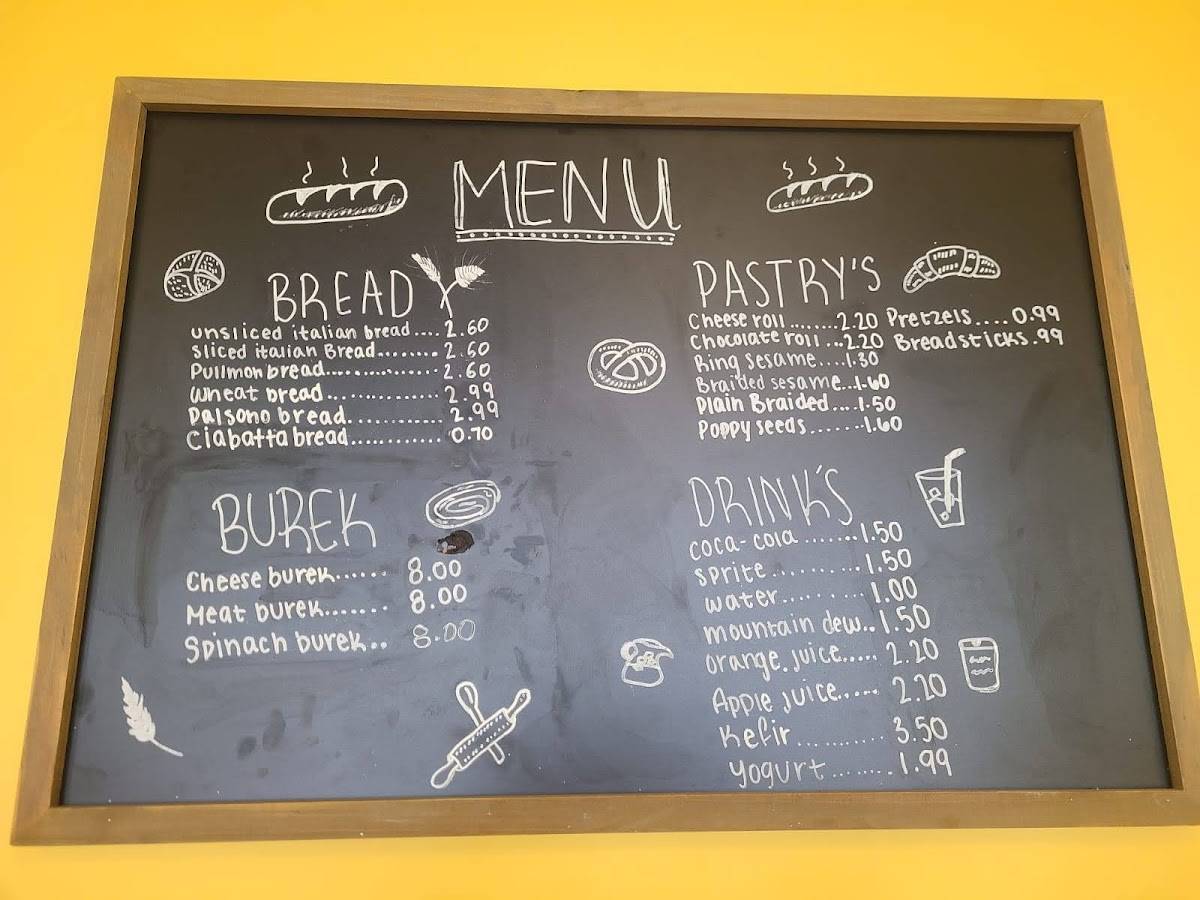 MENU
BREAD
unsliced italian bread.... 2.60
Sliced italian Bread........ 2.60
Pullmon bread.............. 2.60
Wheat bread............... 2.99
Dalsono bread.............. 2.99
Ciabatta bread............ 0.70
BUREK
Cheese burek...... 8.00
Meat burek....... 8.00
Spinach burek.. 8.00
PASTRY'S
Cheese roll........2.20 Pretzels....0.99
Chocolate roll...2.20 Breadsticks.99
Ring sesame....1.30
Braided sesame...1.60
Plain Braided....1.50
Poppy seeds.......1.60
DRINK'S
coca-cola .......1.50
sprite...........1.50
water.......... 1.00
mountain dew..1.50
orange.juice..... 2.20
Apple juice...... 2.20
Kefir........... 3.50
yogurt........1.99